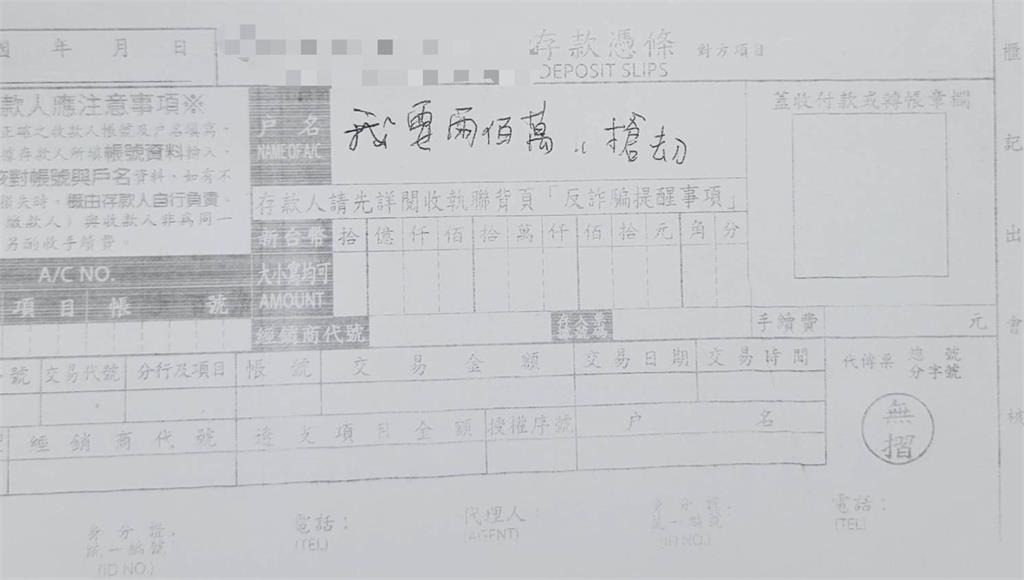 年 月 日
存款憑條 對方項目
DEPOSIT SLIPS
款人應注意事項※
正確之收款人帳號及戶名填寫,
據存款人所填帳號資料輸入,
核對帳號與戶名資料,如有不
損失時,概由存款人自行負責。
繳款人)與收款人非為同一
另酌收手續費。
A/C NO.
項目 帳 號
戶名
NAME OF A/C
我要兩佰萬,, 搶劫
存款人請先詳閱收執聯背頁「反詐騙提醒事項」
新台幣 拾 億 仟 佰 拾 萬 仟 佰 拾 元 角 分
大小寫均可
AMOUNT
經銷商代號
手續費 元
蓋收付款或轉帳章欄
櫃
記
出
會
號 交易代號 分行及項目 帳號 交易金額 交易日期 交易時間
代傳票 總號
分字號
經銷商代號 金額 授權序號 戶名
無
摺
身分證
統一編號
(ID NO.)
電話:
(TEL)
代理人:
(AGENT)
身分證
統一編號
(ID NO.)
電話:
(TEL)